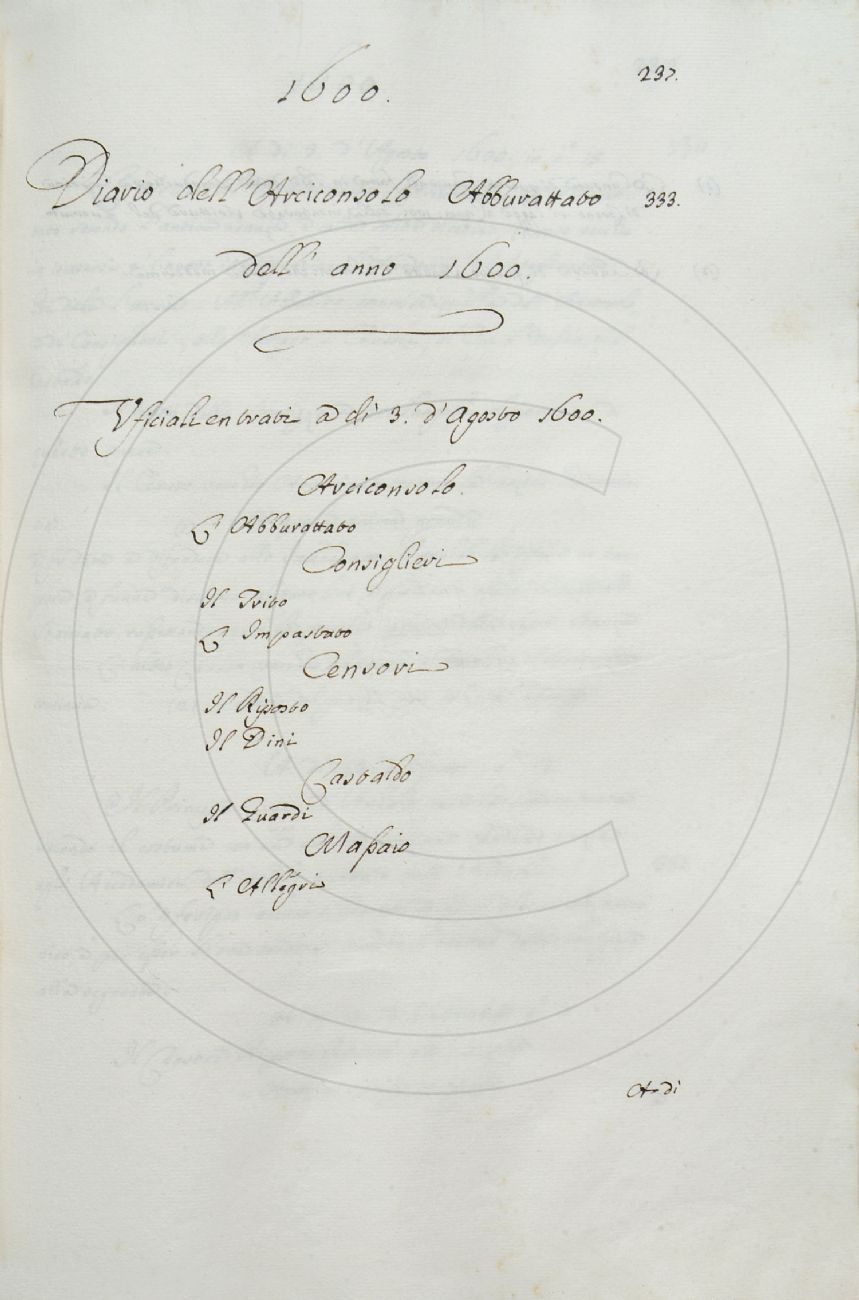 1600.
237.
Diario dell'Arciconsolo Abburattato
333.
dell'anno 1600.
Uficiali entrati a dì 3. d'Agosto 1600.
Arciconsolo.
L'Abburattato
Consiglieri
Il Trito
L'Impastato
Censori
Il Riposto
Il Dini
Castaldo
Il Guardi
Massaio
L'Allegri
A dì